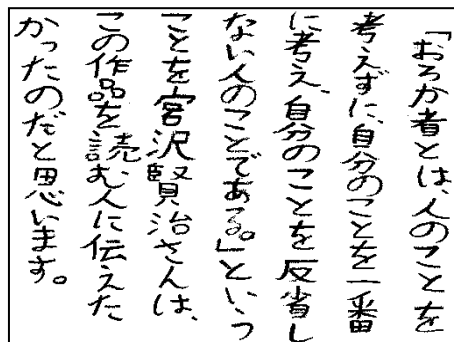 「おろか者とは、人のことを
考えずに、自分のことを一番
に考え、自分のことを反省し
ない人のことである。」という
ことを宮沢賢治さんは、
この作品を読む人に伝えた
かったのだと思います。